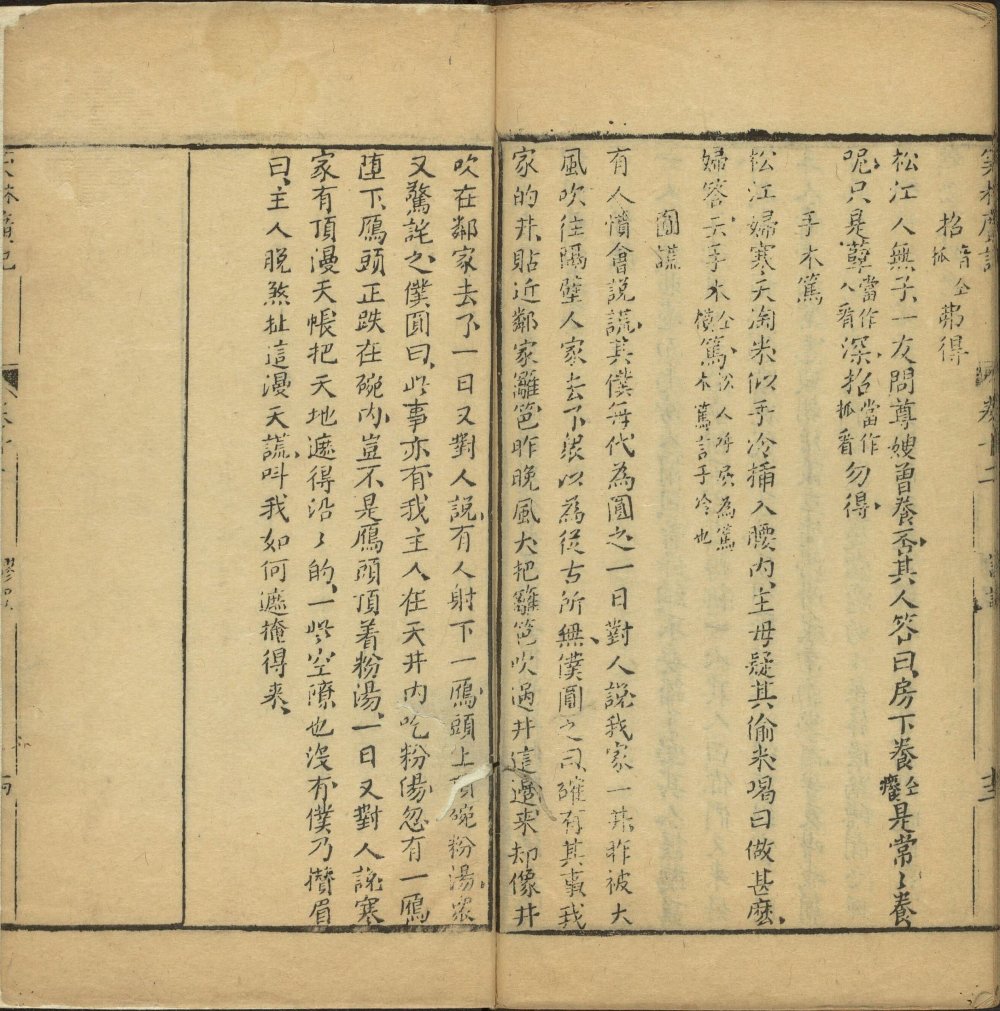 笑林廣記 卷十二 謬誤 十三
招音仝抓弗得
松江人無子一友問尊嫂曾養否其人答曰房下養仝癢是常々養
呢只是孽當作入看深招當作抓看勿得
手木篤
松江婦寒天淘米似手冷插入腰内主母疑其偷米喝曰做甚麽
婦答云手木仝模篤松人呼尿為篤木篤言手冷也
圓謊
有人慣會說謊其僕每代為圓之一日對人說我家一井昨被大
風吹往隔壁人家去了衆以為從古所無僕圓之曰確有其事我
家的井貼近鄰家籬笆昨晚風大把籬笆吹過井這邊来却像井
吹在鄰家去了一日又對人說有人射下一鴈頭上頂碗粉湯衆
又驚詫之僕圓曰此事亦有我主人在天井内吃粉湯忽有一鴈
墮下鴈頭正跌在碗内豈不是鴈頭頂着粉湯一日又對人說寒
家有頂漫天帳把天地遮得沿々的一些空隙也沒有僕乃攢眉
曰主人脫煞扯這漫天謊呌我如何遮掩得来